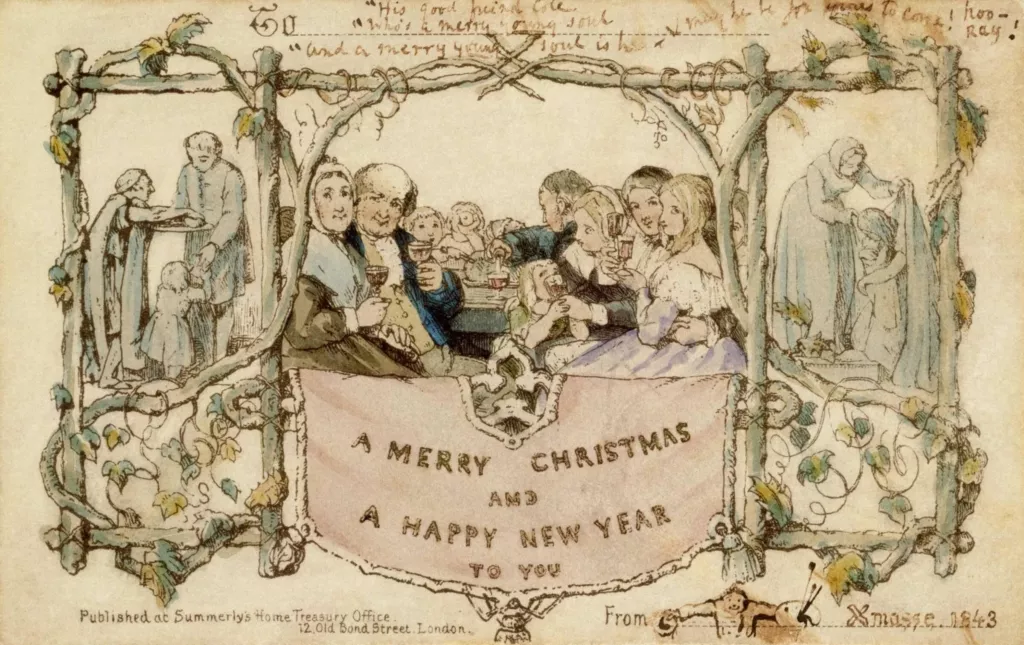 To
"His good friend Cole
"Who's a merry young soul
"and a merry young soul is he
may he be for years to come! hoo-
Ray!
A MERRY CHRISTMAS
AND
A HAPPY NEW YEAR
TO YOU
Published at Summerly's Home Treasury Office.
12, Old Bond Street. London.
From
Xmasse, 1843